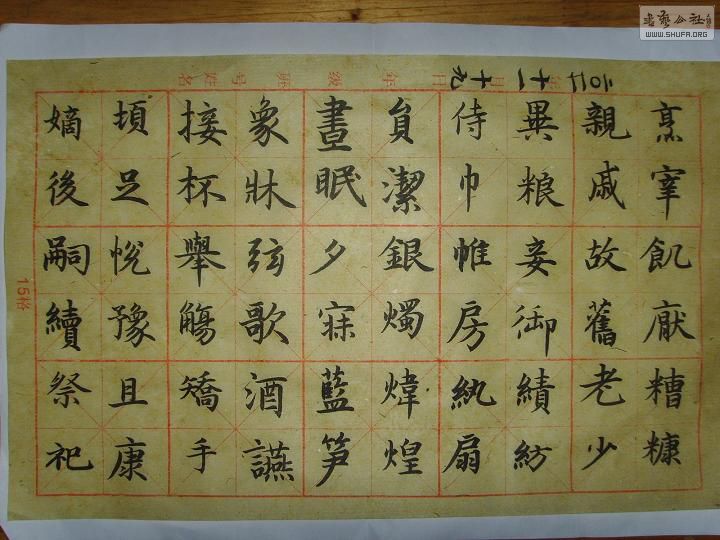 書藝公社
WWW.SHUFA.ORG
年十一月十九日 年级 班 号 姓名
烹宰飢厭糟糠
親戚故舊老少
異粮妾御績紡
侍巾帷房紈扇
員潔銀燭煒煌
晝眠夕寐藍笋
象牀弦歌酒讌
接杯舉觴矯手
頓足悅豫且康
嫡後嗣續祭祀
15格